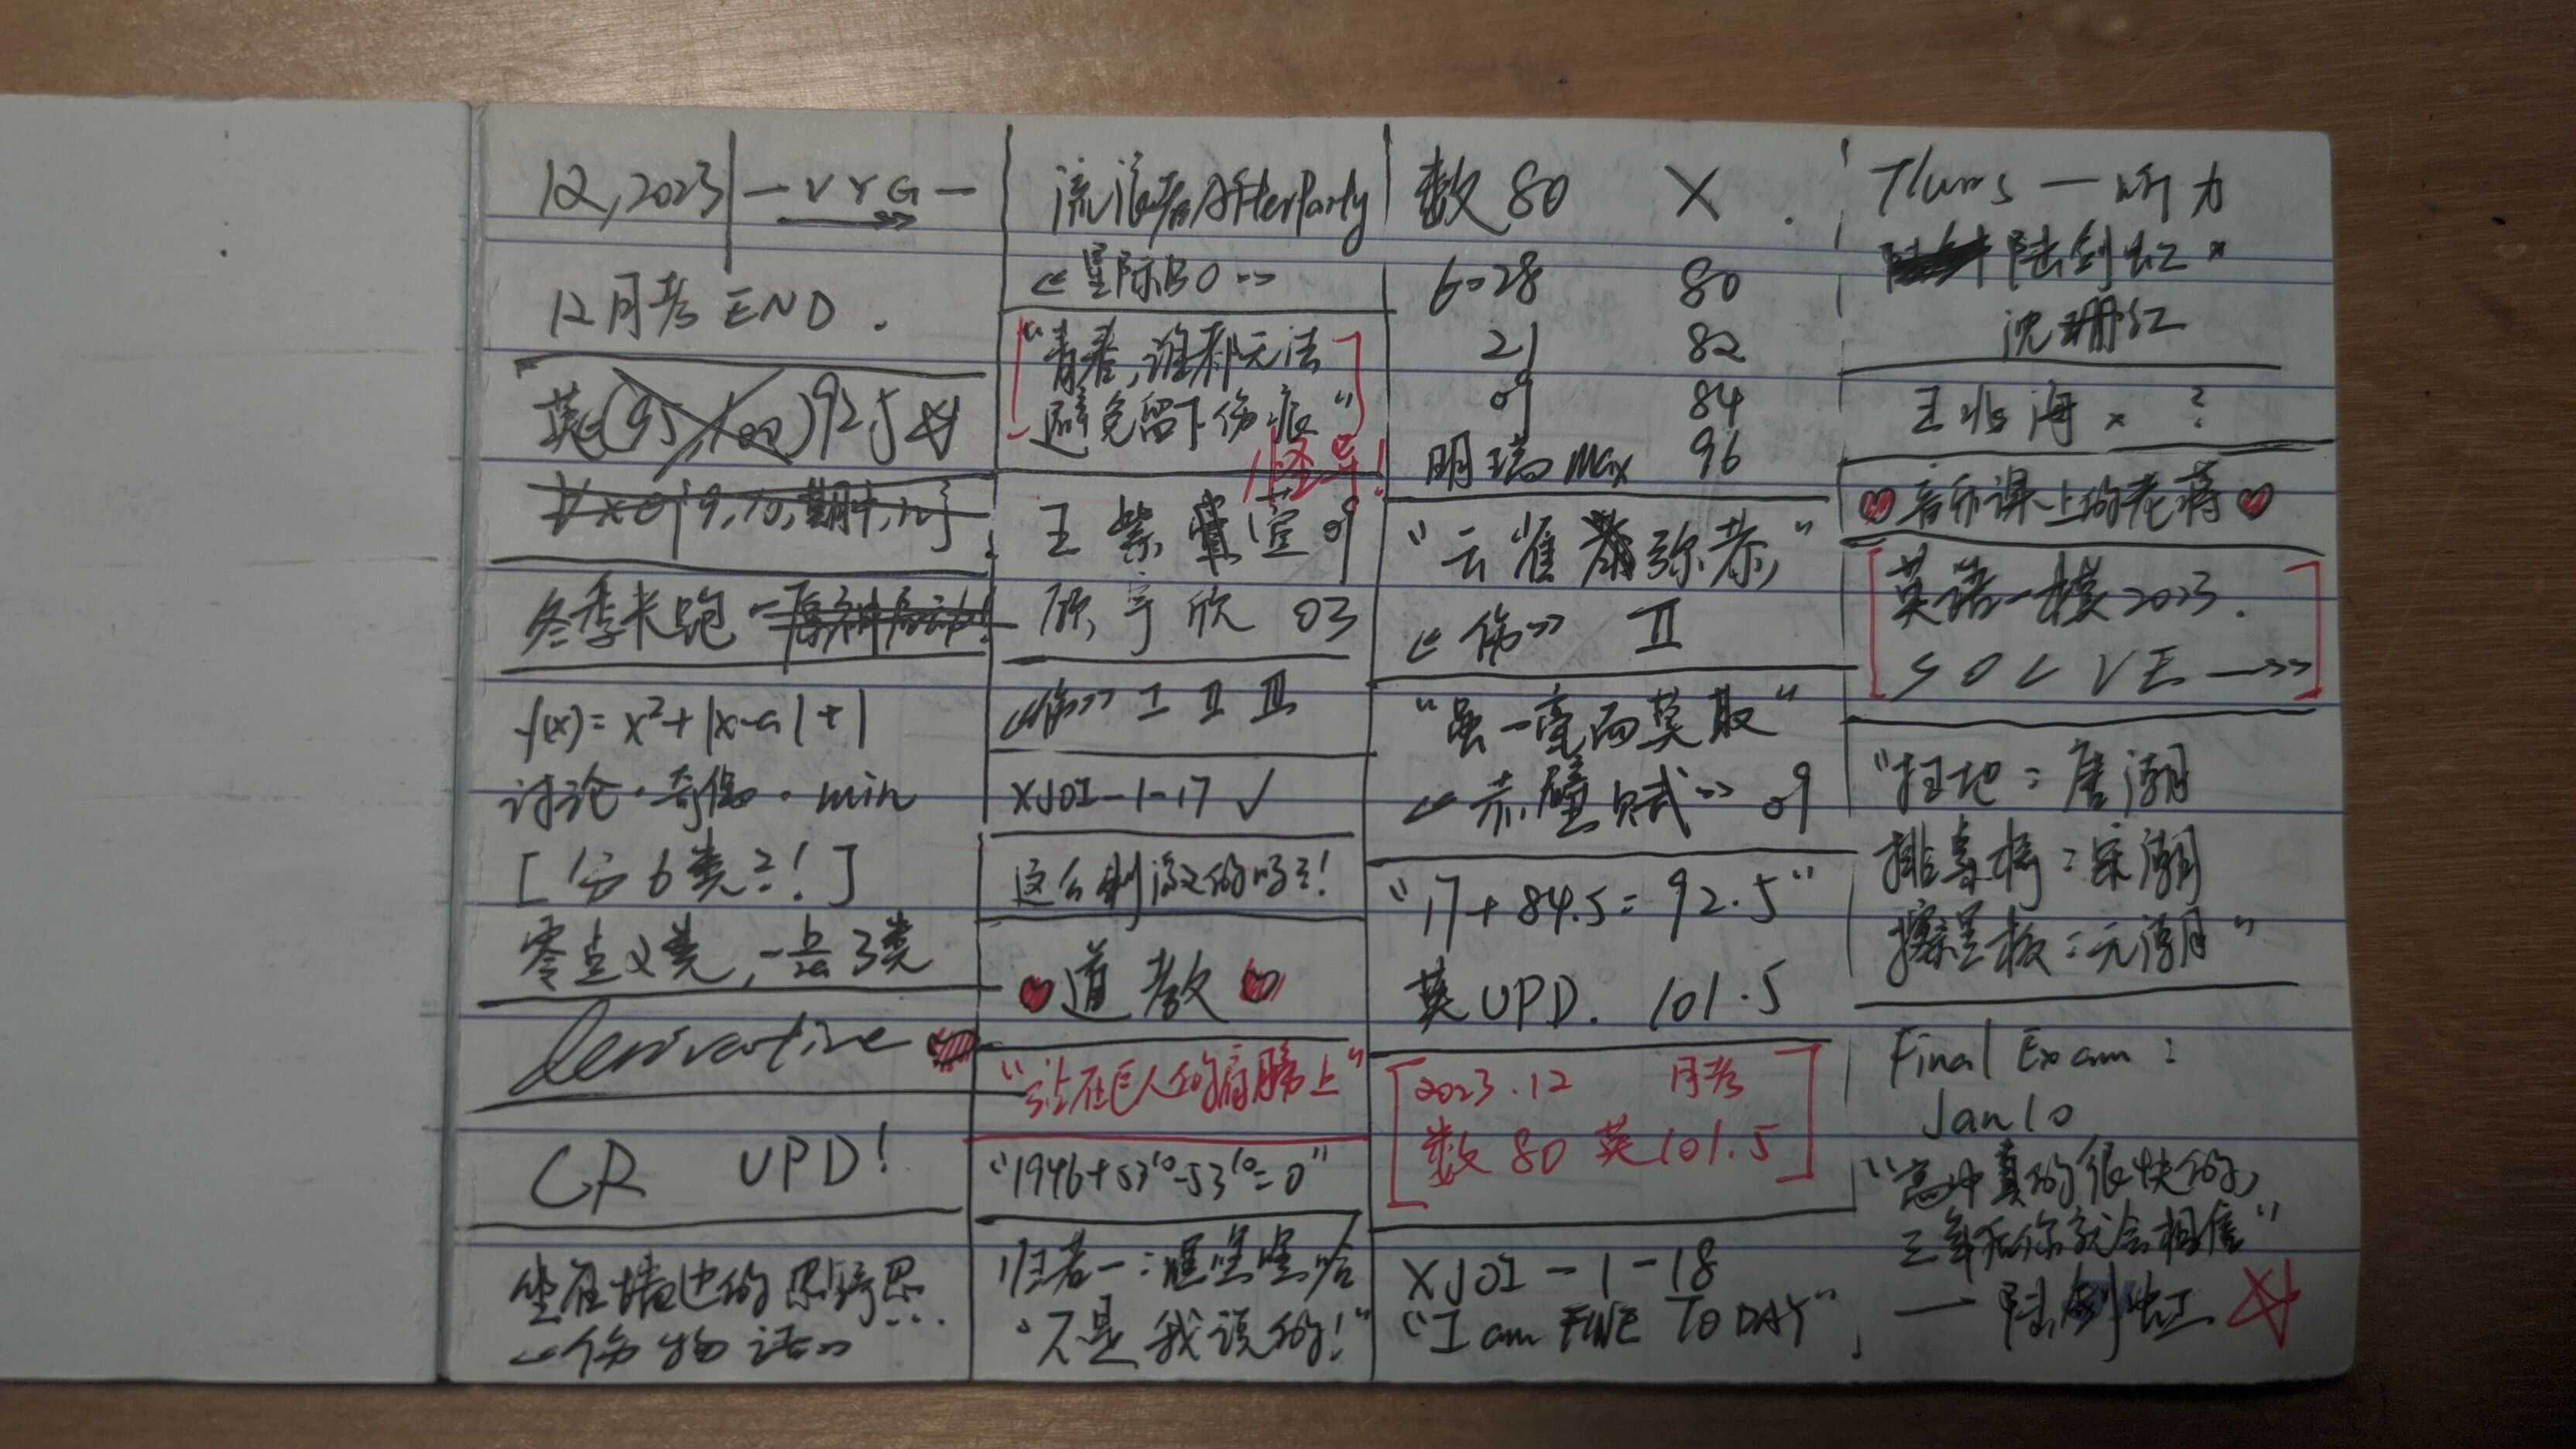 12, 2023 — V Y G —
12月考 END.
英(95/100)92.5
∀x∈{9,10,期中,12}
冬季长跑 — 原神启动!
f(x)=x²+|x-a|+1
讨论·奇偶·min
[分6类?!]
零点2类, -b/2a 3类
derivative
CR UPD!
坐在墙边的
《伤物语》
流浪者AfterParty
《星际50》
"青春,谁都无法
避免留下伤痕"
怪异!
王紫萱 09
顾宇欣 03
《伤》 I II III
XJOI-1-17 ✓
这么刺激的吗?!
♥道教♥
"站在巨人的肩膀上"
"1946+53¹⁰-53¹⁰=0"
归若一:嘿嘿嘿哈
"不是我误的!"
数 80 X
6-28 80
21 82
09 84
明瑞 Max 96
"云雀弥恭"
《伤》 II
"虽一毫而莫取"
《赤壁赋》 09
"17+84.5=92.5"
英UPD. 101.5
[2023.12 月考
数80 英101.5]
XJOI-1-18
"I am FINE TODAY"
Thurs — 听力
陆剑虹 x
沈珊红
王兆海 x ?
♥音乐课上的老蒋♥
[英语一模2023.
SOLVE →]
"扫地:唐潮
排桌椅:宋潮
擦黑板:元潮"
Final Exam:
Jan 10
"高中真的很快的,
三年后你就会相信"
— 陆剑虹